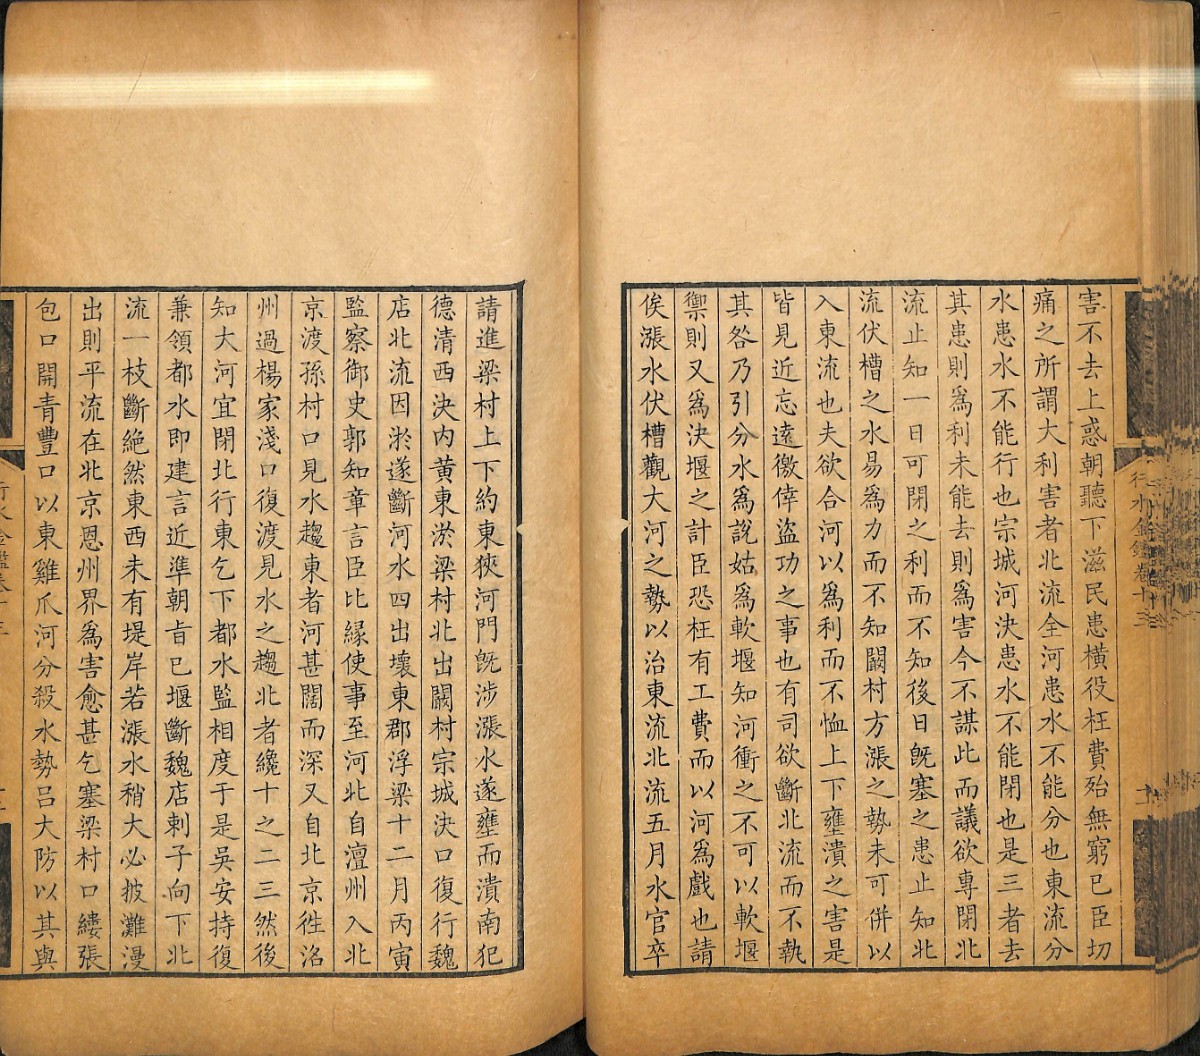 害不去上惑朝聽下滋民患橫役枉費殆無窮已臣切
痛之所謂大利害者北流全河患水不能分也東流分
水患水不能行也宗城河決患水不能閉也是三者去
其患則爲利未能去則爲害今不謀此而議欲專閉北
流止知一日可閉之利而不知後日旣塞之患止知北
流伏槽之水易爲力而不知闞村方漲之勢未可併以
入東流也夫欲合河以爲利而不恤上下壅潰之害是
皆見近忘遠徼倖盜功之事也有司欲斷北流而不執
其咎乃引分水爲說姑爲軟堰知河衝之不可以軟堰
禦則又爲決堰之計臣恐枉有工費而以河爲戲也請
俟漲水伏槽觀大河之勢以治東流北流五月水官卒
請進梁村上下約東狹河門旣涉漲水遂壅而潰南犯
德清西決内黄東淤梁村北出闞村宗城決口復行魏
店北流因淤遂斷河水四出壞東郡浮梁十二月丙寅
監察御史郭知章言臣比緣使事至河北自澶州入北
京渡孫村口見水趨東者河甚闊而深又自北京徃洺
州過楊家淺口復渡見水之趨北者纔十之二三然後
知大河宜閉北行東乞下都水監相度于是吳安持復
兼領都水即建言近準朝旨已堰斷魏店剌子向下北
流一枝斷絶然東西未有堤岸若漲水稍大必披灘漫
出則平流在北京恩州界爲害愈甚乞塞梁村口縷張
包口開青豐口以東雞爪河分殺水勢吕大防以其與